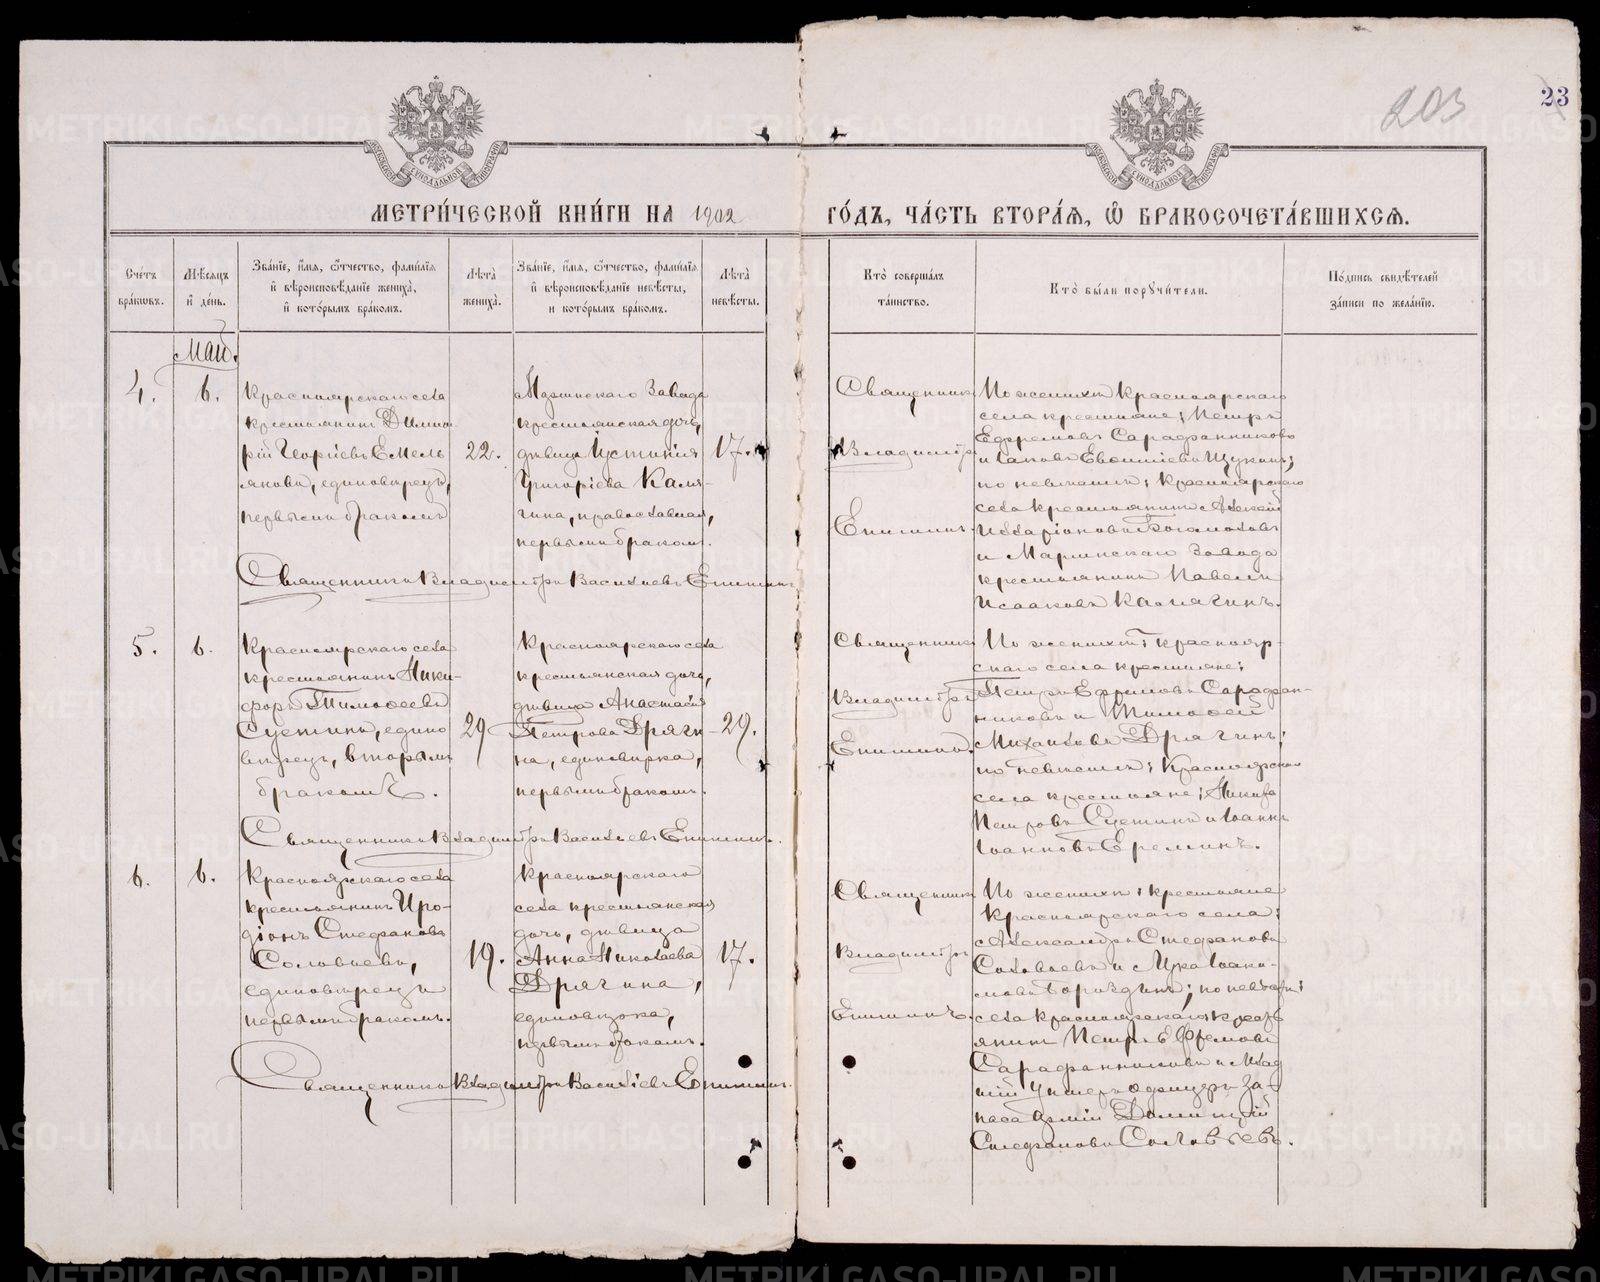 203
23
МЕТРИ́ЧЕСКОЙ КНИ́ГИ НА 1902
ГО́ДЪ, ЧА́СТЬ ВТОРА́Ѧ, Ѡ҆ БРАКОСОЧЕТА́ВШИХСѦ.
Сче́тъ
бра́кѡвъ.
Мѣ́сѧцъ
и҆ де́нь.
Зва́нїе, и҆́мѧ, ѻ҆́тчество, фами́лїѧ
и҆ вѣроисповѣ́данїе жениха̀,
и҆ кото́рымъ бра́комъ.
Лѣ́та
жениха̀.
Зва́нїе, и҆́мѧ, ѻ҆́тчество, фами́лїѧ
и҆ вѣроисповѣ́данїе невѣ́сты,
и кото́рымъ бра́комъ.
Лѣ́та
невѣ́сты.
Кто̀ соверша́лъ
та́инство.
Кто̀ бы́ли поручи́тели.
По́дпись свидѣ́телей
за́писи по жела́нїю.
Май.
4.
6.
Красноярскаго села
крестьянинъ Димит
рій Георгіевъ Емель
яновъ, единовѣрецъ,
первымъ бракомъ
22.
завода
крестьянская дочь,
дѣвица Іустинія
Григоріева Каля-
гина, православная,
первымъ бракомъ.
17.
Священникъ
Владиміръ
Епишинъ.
По женихѣ Красноярскаго
села крестьяне: Петръ
Ефремовъ Сарафанниковъ
и Іаковъ Евѳиміевъ Щукинъ;
по невѣстѣ: Красноярскаго
села крестьянинъ Алексій
Илларіоновъ Богомоловъ
и Маринскаго завода
крестьянинъ Павелъ
Исааковъ Калягинъ.
Священникъ Владиміръ Васильевъ Епишинъ
5.
6.
Красноярскаго села
крестьянинъ Ники-
форъ Тимоѳеевъ
Сустинъ, едино
вѣрецъ, вторымъ
бракомъ.
29
Красноярскаго села
крестьянская дочь,
дѣвица Анастасія
Петрова Дрягн
на, единовѣрка,
первымъ бракомъ.
29.
Священникъ
Владиміръ
Епишинъ.
По женихѣ: Краснояр-
скаго села крестьяне:
Петръ Ефремовъ Сарафан-
никовъ и Тимоѳей
Михаиловъ Дрягинъ;
по невѣстѣ: Красноярскаго
села крестьяне: Никифоръ
Петровъ Сустинъ и Іоаннъ
Іоанновъ Ереминъ.
Священникъ Владиміръ Васильевъ Епишинъ.
6.
6.
Красноярскаго села
крестьянинъ Иро-
діонъ Стефановъ
Соловьевъ,
единовѣрецъ
первымъ бракомъ.
19.
Красноярскаго
села крестьянская
дочь, дѣвица
Анна Николаева
Дрягина,
единовѣрка,
первымъ бракомъ.
17.
Священникъ
Владиміръ
Епишинъ.
По женихѣ: крестьяне
Красноярскаго села:
Александръ Стефановъ
Соловьевъ и Лука
по невѣстѣ:
села Красноярскаго крест
янинъ Петръ Ефремовъ
Сарафанниковъ и Млад
шій унтеръ офицеръ за-
паса арміи Димитрій
Стефановъ Соловьевъ.
Священникъ Владиміръ Васильевъ Епишинъ.
METRIKI.GASO-URAL.RU